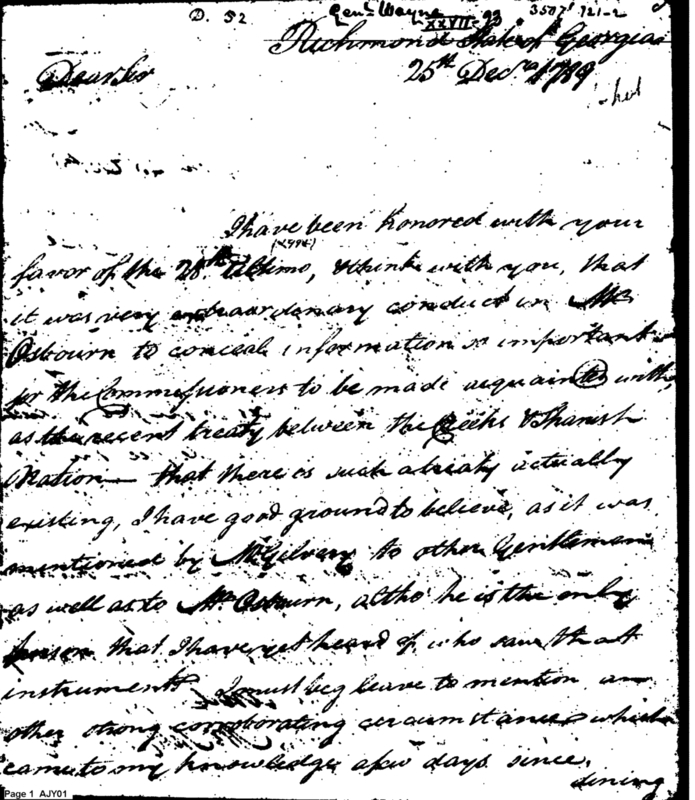 D. 52 Genl Wayne XXVII-93 3507 121-2
Richmond State of Georgia
25th Decr 1789
Dear Sir
I have been honored with your
favor of the 28th Ultimo, & think with you, that
it was very extraordinary conduct in Mr
Osbourn to conceal information so important
for the Commissioners to be made acquainted with,
as the recent treaty between the Creeks & Spanish
Nation — that there is such a treaty actually
existing, I have good ground to believe, as it was
mentioned by McGilvery to other Gentlemen
as well as to Mr Osbourn, altho he is the only
person that I have yet heard of, who saw that
instrument. I must beg leave to mention an
other strong corroborating circumstance which
came to my knowledge a few days since.
dining
Page 1 AJY01